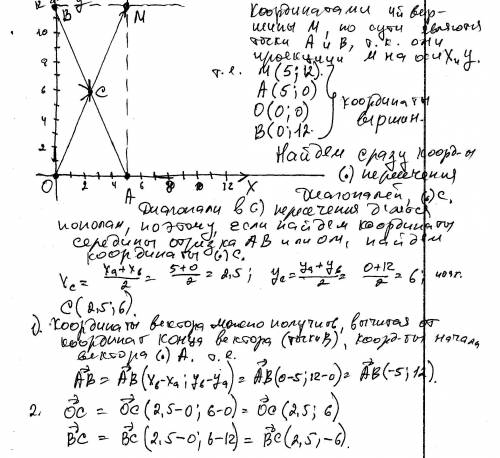 12 B y M
10
8
6 C
4
2
O 2 4 A 6 8 10 12 X
Координатами вершины M, по сути являются
точки A и B, т.к. они
проекции M на оси X и У.
т.е. M(5; 12)
A(5; 0)
O(0; 0)
B(0; 12)
координаты
вершин.
Найдём сразу коорд-ы
(.) пересечения
диагоналей, (.)C.
Диагонали в (.) пересечения делятся
пополам, поэтому, если найдём координаты
середины отрезка AB или OM, найдём
координаты (.)C.
Xc = (xa+xb)/2 = (5+0)/2 = 2,5; yc = (ya+yb)/2 = (0+12)/2 = 6;
C(2,5; 6).
1). Координаты вектора можно получить, вычитая от
координат конца вектора (точки B), коорд-ты начала
вектора (.) A. т.е.
AB = AB(xb-xa; yb-ya) = AB(0-5; 12-0) = AB(-5; 12).
2. OC = OC(2,5-0; 6-0) = OC(2,5; 6)
BC = BC(2,5-0; 6-12) = BC(2,5; -6).